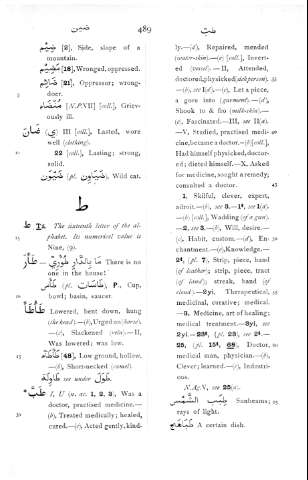 ضَيْمَن 489 طَبّ
ضَيْم [2]. Side, slope of a
mountain.
[18], Wronged, oppressed.
[21], Oppressor; wrong-
doer.
[N.P.VII] [coll.], Griev-
ously ill.
ضَان (ي) III [coll.], Lasted, wore
well (clothing).
22 [coll.], Lasting; strong,
solid.
ضَيْوَن (pl. ضَيَاوِن), Wild cat.
ط
ط Ṭā. The sixteenth letter of the al-
phabet. Its numerical value is
Nine, (9).
مَا بِالدَّارِ There is no
one in the house!
طَاس (pl. طَاسَات), P. Cup,
bowl; basin, saucer.
طَأْطَأ Lowered, bent down, hung
(the head):—(b), Urged on (horse).
—(c), Slackened (rein).—II,
Was lowered; was low.
[48], Low ground, hollow.
—(b), Short-necked (camel).
طَاوِلَة see under طُول
طَبّ I, U (n. ac. 1, 2, 3), Was a
doctor, practised medicine.—
(b), Treated medically; healed,
cured.—(c), Acted gently, kind-
ly.—(d), Repaired, mended
(water-skin).—(e) [coll.], Invert-
ed (vessel).—II, Attended,
doctored, physicked (sick person).
—(b), see I(d).—(c), Let a piece,
a gore into (garment).—(d),
Shook to & fro (milk-skin).—
(e), Fascinated.—III, see II(a).
—V, Studied, practised medi-
cine, became a doctor.—(b) [coll.],
Had himself physicked, doctor-
ed; dieted himself.—X, Asked
for medicine, sought a remedy;
consulted a doctor.
1. Skilful, clever, expert,
adroit.—(b), see 3.—1ᵃ, see I(a).
—(b) [coll.], Wadding (of a gun).
—2, see 3.—(b), Will, desire.—
(c), Habit, custom.—(d), En-
chantment.—(e), Knowledge.—
2ᵃ, (pl. 7), Strip, piece, hand
(of leather); strip, piece, tract
(of land); streak, band (of
cloud).—2yi, Therapeutical,
medicinal, curative; medical.
—3. Medicine, art of healing;
medical treatment.—3yi, see
2yi.—23ᵃ, (pl. 23), see 2ᵃ.—
25, (pl. 15ᵃ, 68), Doctor,
medical man, physician.—(b),
Clever; learned.—(c), Industri-
ous.
N.Ag.V, see 25(a).
الشَّمْس Sunbeams;
rays of light.
A certain dish.